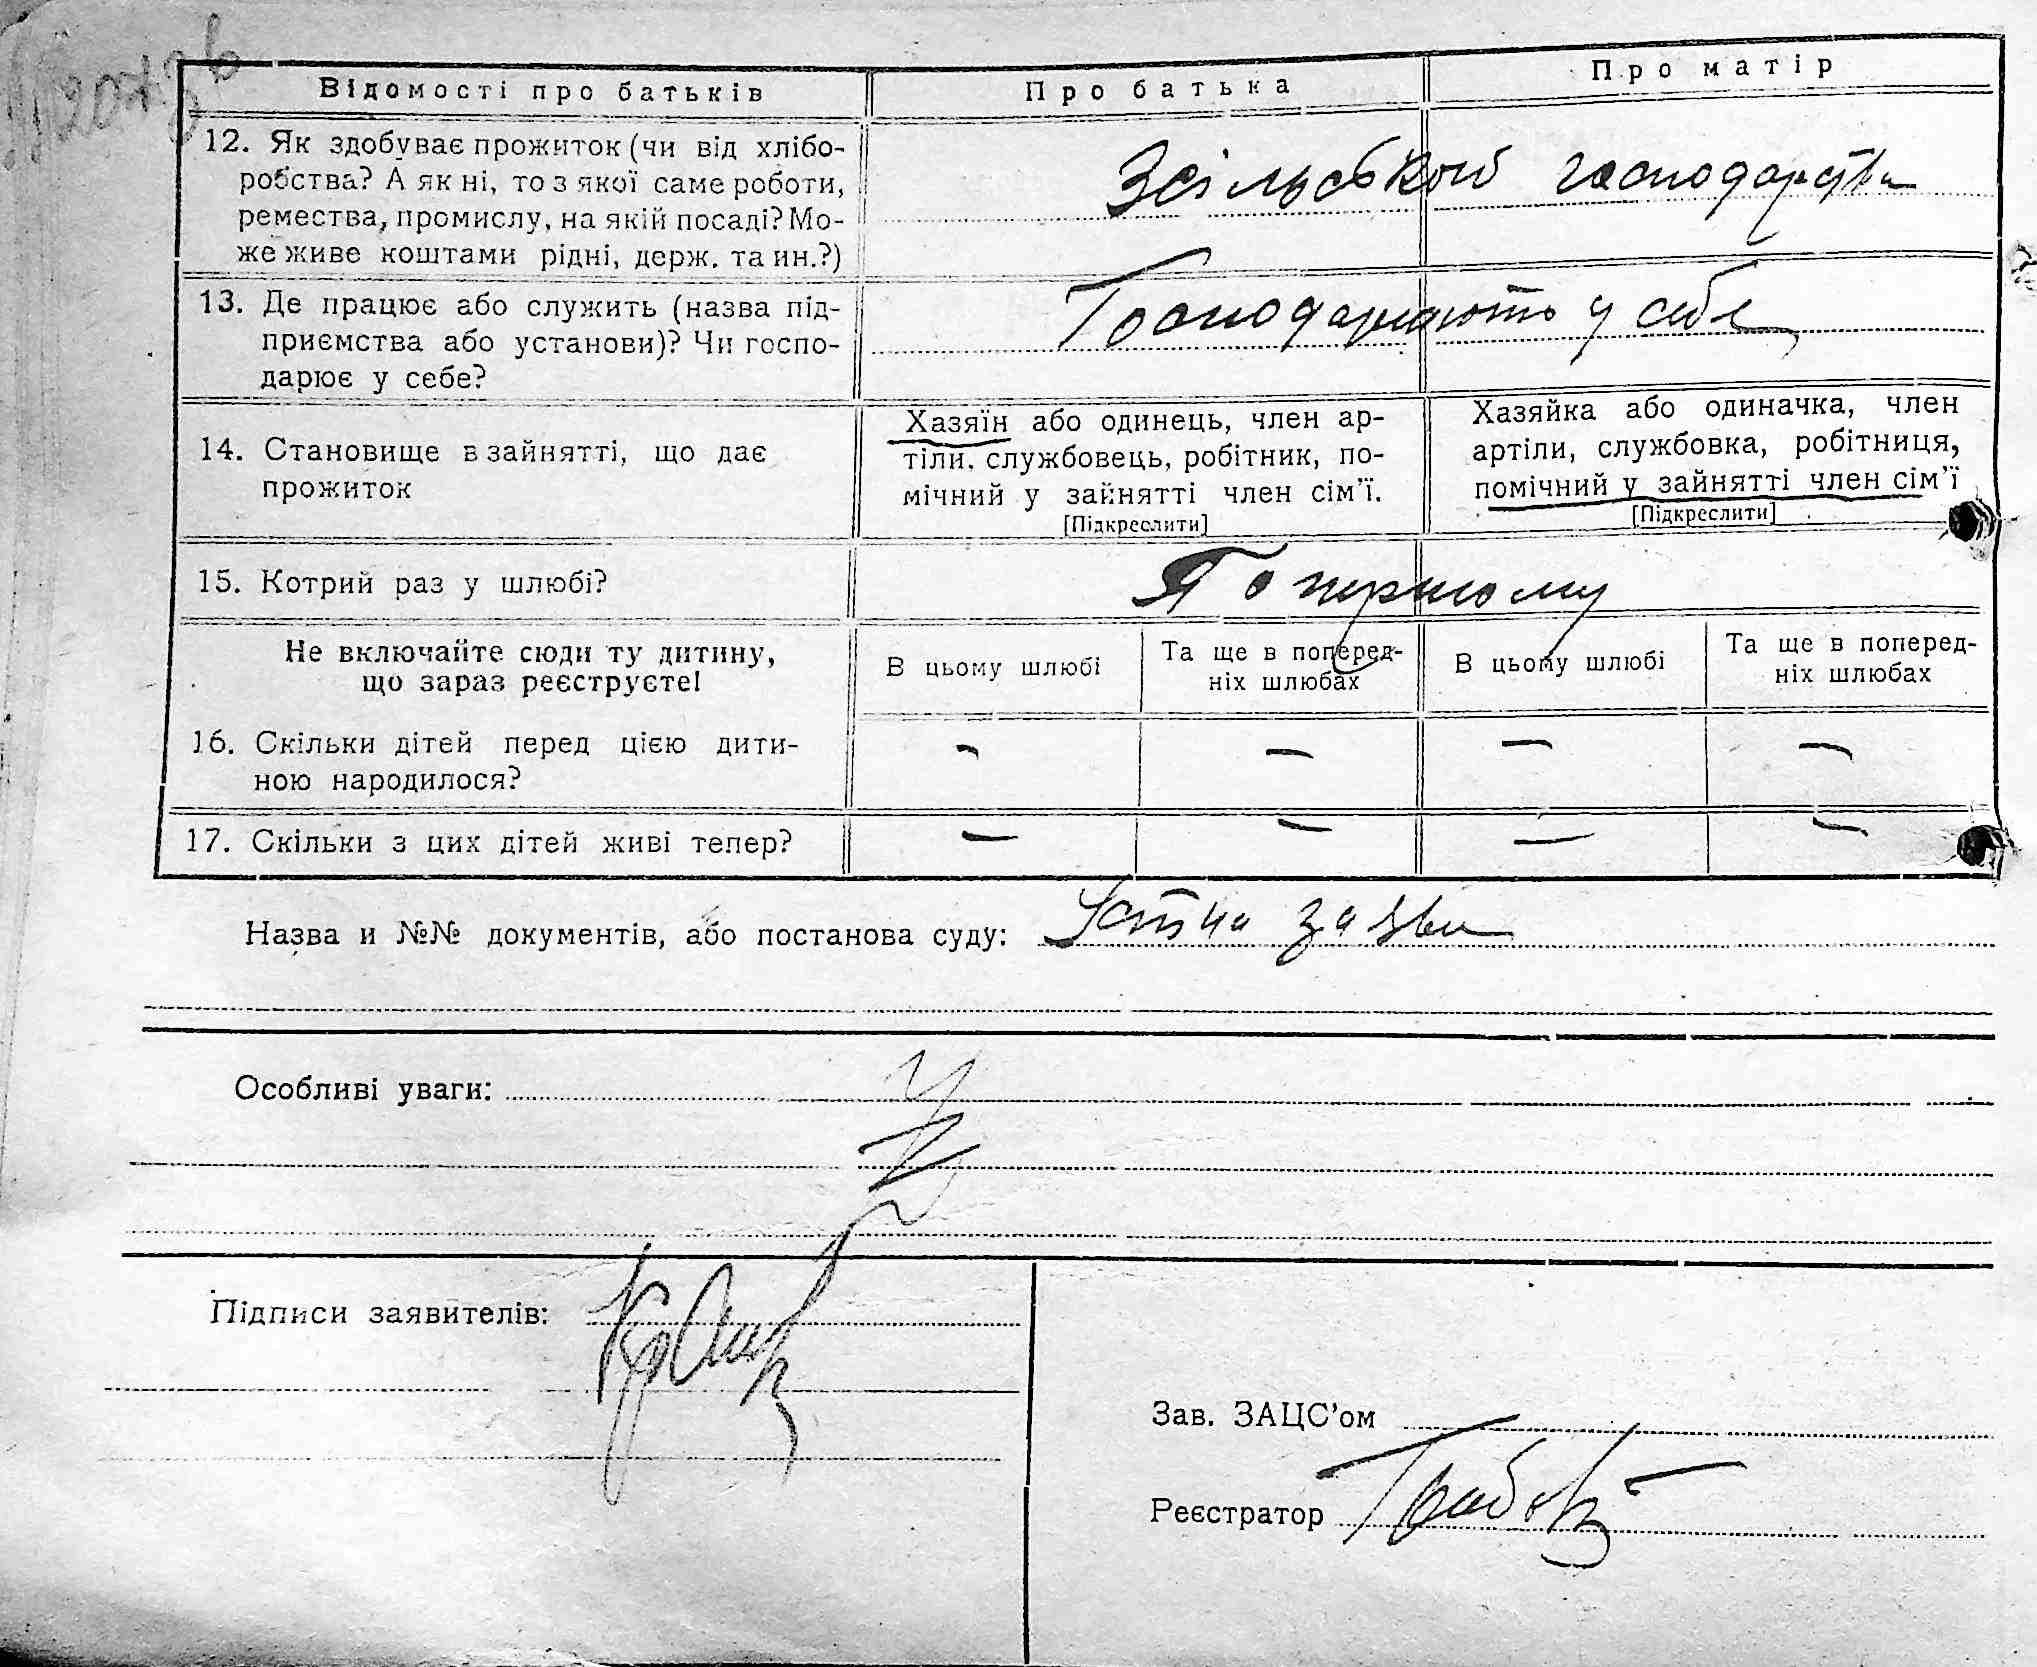 Відомості про батьків Про батька Про матір
12. Як здобуває прожиток (чи від хлібо-
робства? А як ні, то з якої саме роботи,
ремества, промислу, на якій посаді? Мо-
же живе коштами рідні, держ. та ин.?)
Зсільської господарства
13. Де працює або служить (назва під-
приємства або установи)? Чи госпо-
дарює у себе?
Господарюють у себе
14. Становище в зайнятті, що дає
прожиток
Хазяїн або одинець, член ар-
тіли, службовець, робітник, по-
мічний у зайнятті член сім'ї.
[Підкреслити]
Хазяйка або одиначка, член
артіли, службовка, робітниця,
помічний у зайнятті член сім'ї
[Підкреслити]
15. Котрий раз у шлюбі?
По першому
Не включайте сюди ту дитину,
що зараз реєструєте!
В цьому шлюбі
Та ще в поперед-
ніх шлюбах
В цьому шлюбі
Та ще в поперед-
ніх шлюбах
16. Скільки дітей перед цією дити-
ною народилося?
– – – –
17. Скільки з цих дітей живі тепер?
– – – –
Назва и №№ документів, або постанова суду: Устна заява
Особливі уваги:
Підписи заявителів:
Зав. ЗАЦС'ом
Реєстратор